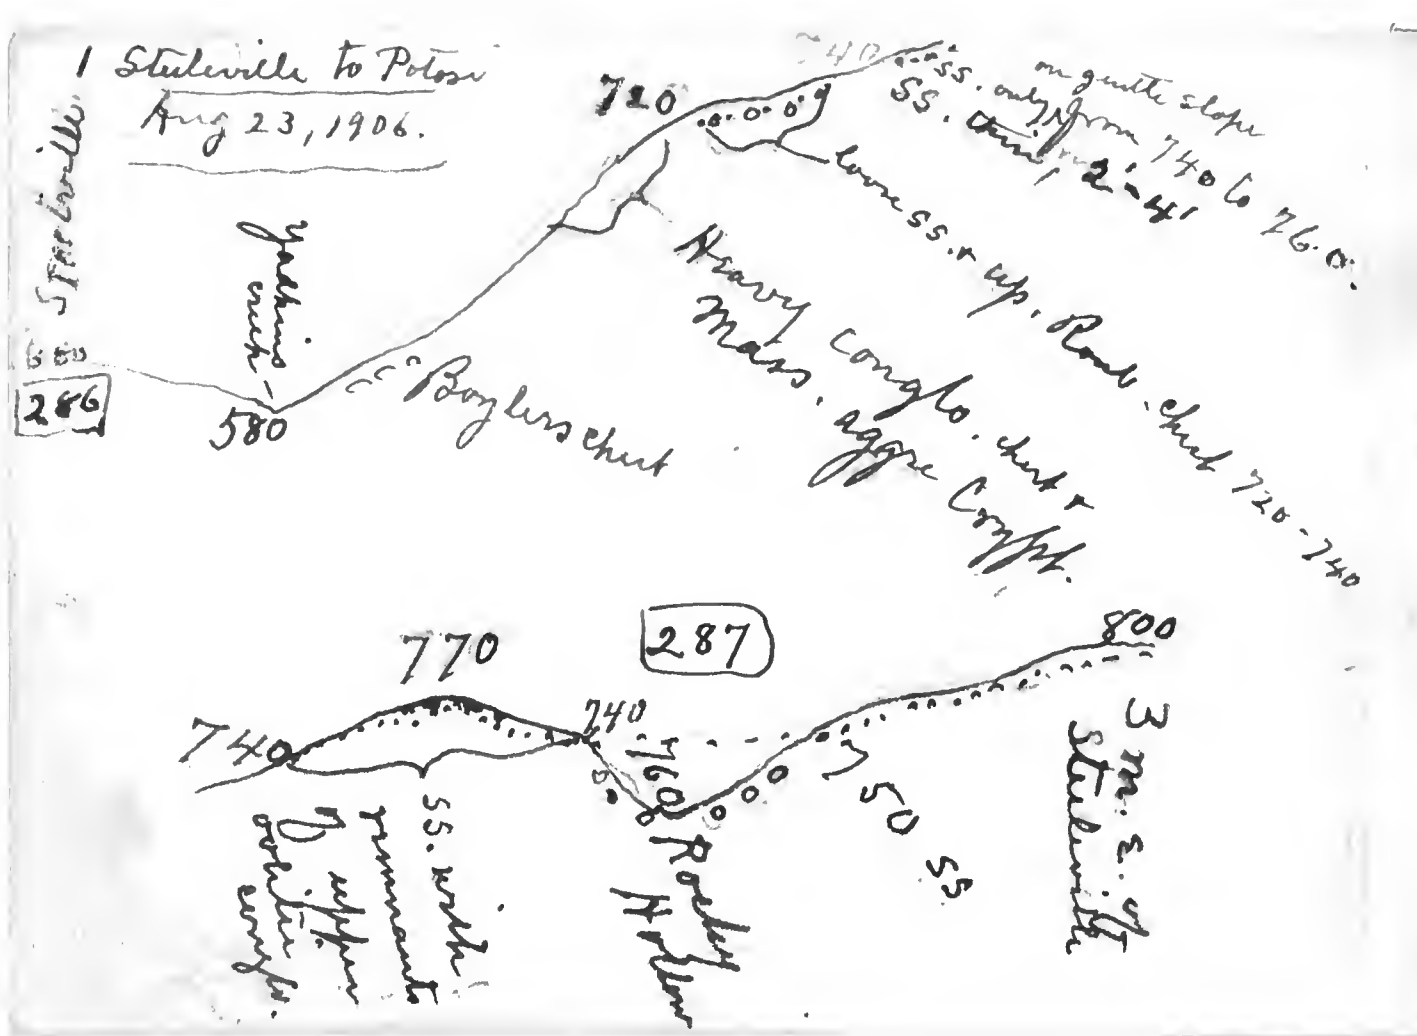 1 Steeleville to Potosi
Aug 23, 1906.
Steeleville
680
286
Yadkins
creek
580
Boylers chert
720
740
ss. only from 740 to 760.
on gentle slope
SS. thin, 2'-4'
loose ss. & up. Roub. chert 720-740
Heavy conglo. chert &
Mass. aggre Crypt.
287
770
740
740
760
750 SS
800
SS. with
remnants
of upper
oolitic
conglo.
Rocky
Hollow
3 m. E. of
Steeleville